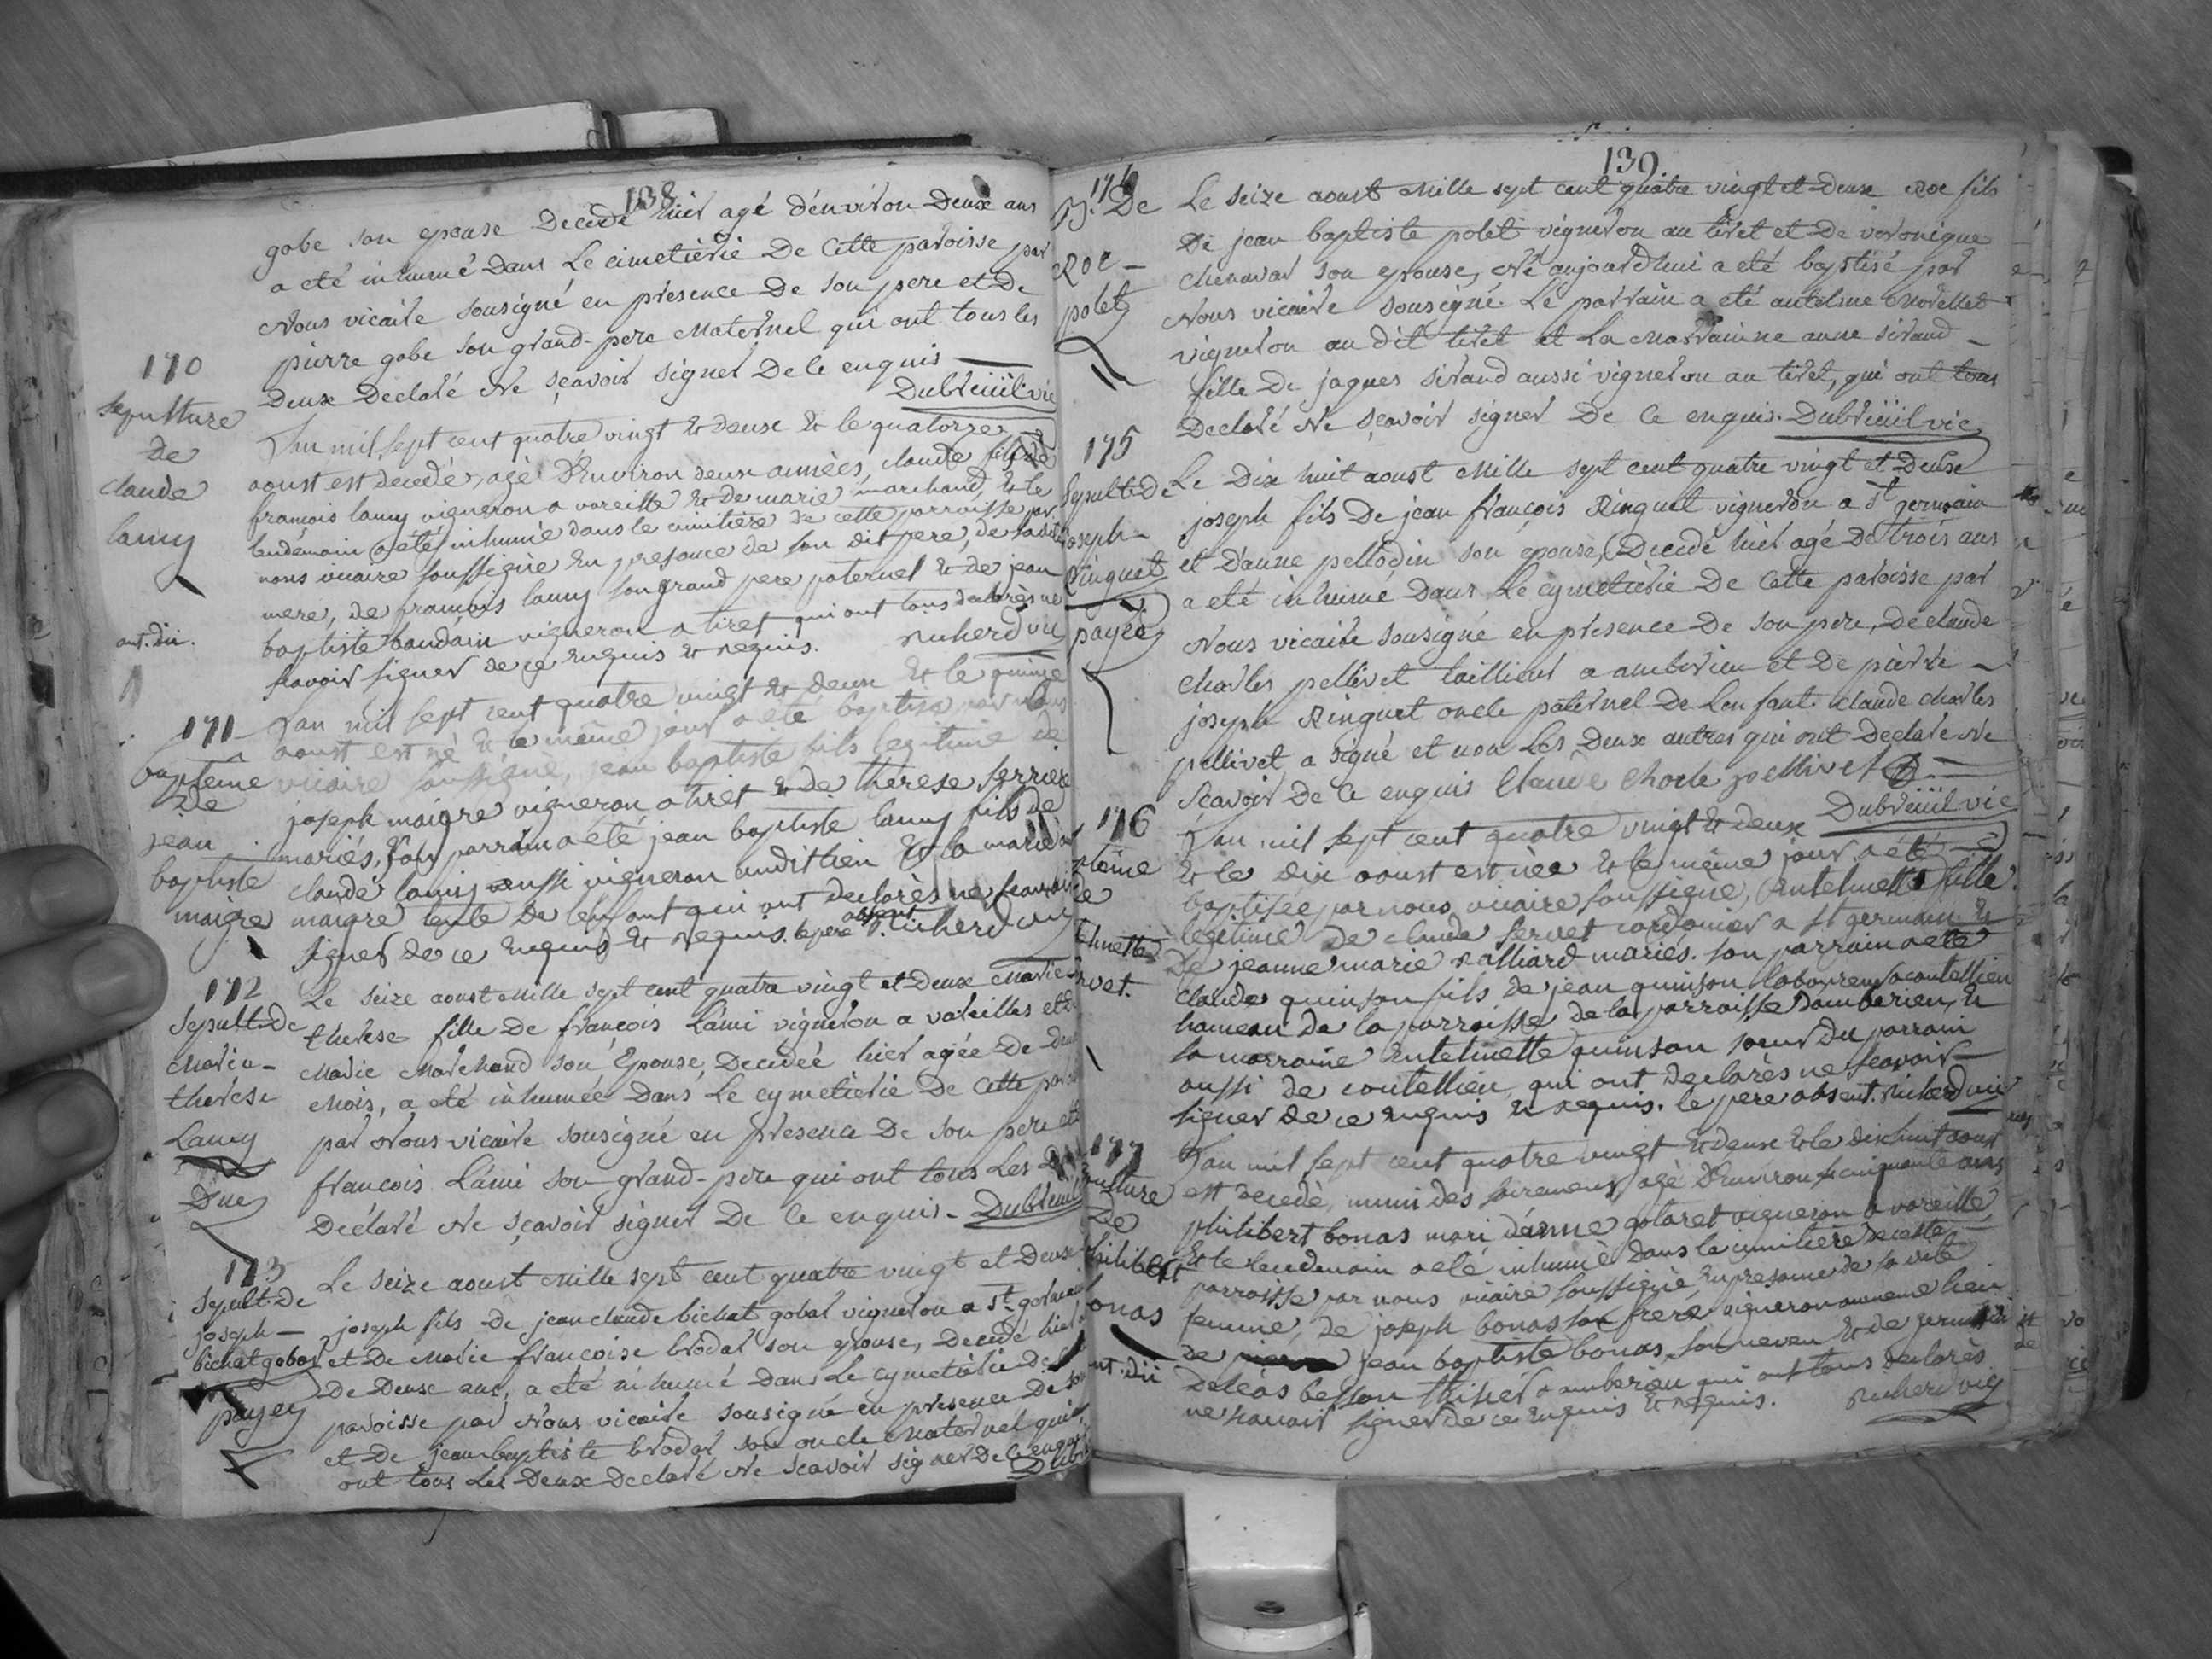 138
gobe son epouse Decedé hier agé d'environ Deux ans
a eté inhumé Dans Le cimetierie De Cette paroisse par
Nous vicaire sousigné en presence De son pere et De
pierre gobe son grand-pere Maternel qui ont tous les
Deux Declaré Ne sçavoir signer De le enquis
Dubreüil vic
170
sepulture
de
claude
lamy
ant. dii.
L'an mil sept cent quatre vingt & deux & le quatorze
aoust est decedé, agé d'Environ deux années, claude fils de
françois lamy vigneron a vareille & de marie marchand, & le
lendemain a été inhumé dans le cimitière de cette parroisse par
nous vicaire soussigné En presance de son dit pere, de sa dite
mere, de françois lamy son grand pere paternel & de jean
baptiste baudain vigneron a tiret qui ont tous declarès ne
scavoir signer de ce Enquis & requis. Richerd vic
171
baptême
De
jean
baptiste
maigre
L'an mil sept cent quatre vingt & deux & le quinze
aoust est né & le même jour a été baptisé par nous
vicaire soussigné, jean baptiste fils legitime de
joseph maigre vigneron a tiret & de therese ferrier
mariés, son parrain a été jean baptiste lamy fils de
claude lamy aussi vigneron audit lieu & la marie
maigre tente De l'enfant qui ont declarès ne scavoir
signer de ce Enquis & requis. le pere absent. Richerd vic
172
Sepult-De
Marie-
therese
Lamy
Due
Le seize aoust Mille sept cent quatre vingt et Deux Marie
therese fille De françois Lami vigneron a vareilles et De
Marie Marchand son Epouse, Decedée hier agée De Deux
Mois, a eté inhumée Dans Le cymetierie De Cette paroisse
par Nous vicaire sousigné en presence De son pere et
françois Lami son grand-pere qui ont tous Les
Declaré Ne sçavoir signer De le enquis- Dubreüil
173
Sepult-de
joseph
bichat gobar
payey
Le seize aoust Mille sept cent quatre vingt et Deux
joseph fils De jean claude bichat gobar vigneron a st germain
et De Marie françoise brodar son epouse, Decedé hier
De Deux ans, a eté inhumé Dans Le cymetierie De
paroisse par Nous vicaire sousigné en presence De son
et De jean baptiste brodar son oncle Maternel qui
ont tous Les Deux Declaré Ne sçavoir signer De le enquis
139
174
B. De
Roc
polet
Le seize aoust Mille sept cent quatre vingt et Deux Roc fils
De jean baptiste polet vigneron au tiret et De veronique
chenavar son epouse, Né aujourd'hui a eté baptisé par
Nous vicaire sousigné. Le parrain a eté antelme Morellet
vigneron au dit tiret et La Marrainne anne sirand
fille De jaques sirand aussi vigneron au tiret, qui ont tous
Declaré Ne sçavoir signer De le enquis. Dubreüil vic
175
Sepult-De
joseph
Ringuet
payée
Le Dix huit aoust Mille sept cent quatre vingt et Deux
joseph fils De jean françois Ringuet vigneron a st germain
et D'anne pellodin son epouse, Decedé hier agé De trois ans
a eté inhumé Dans Le cymetierie De Cette paroisse par
Nous vicaire sousigné en presence De son pere, De claude
Charles pellivet taillieur a amberieu et De pierre
joseph Ringuet oncle paternel De L'enfant. Claude Charles
pellivet a signé et non Les Deux autres qui ont Declaré Ne
sçavoir De le enquis Claude Charle pellivet
Dubreüil vic
176
L'an mil sept cent quatre vingt & deux
& le dix aoust est née & le même jour a été
baptisée par nous vicaire soussigné, Entelmette fille
legitime de claude servet cordonier a st germain &
De jeanne marie ralliard mariés. son parrain a été
claude quinson fils de jean quinson laboureur a coutellieu
hameau de la parroisse de la parroisse d'amberieu, &
la marraine Entelmette quinson soeur du parrain
aussi de coutellieu, qui ont declarès ne scavoir
signer de ce Enquis & requis. le pere absent. Richerd vic
177
De
philibert
bonas
ant. dii
L'an mil sept cent quatre vingt & deux & le dix huit aoust
est decedé, muni des sacremens, agé d'Environ cinquante ans
philibert bonas mari d'anne golaret vigneron a vareille,
& le lendemain a été inhumé dans le cimitière de cette
parroisse par nous vicaire soussigné, En presance de sa dite
femme, de joseph bonas son frere vigneron au meme lieu
de jean baptiste bonas, son neveu & de
besson a amberieu qui ont tous declarès
ne scavoir signer de ce Enquis & requis. Richerd vic